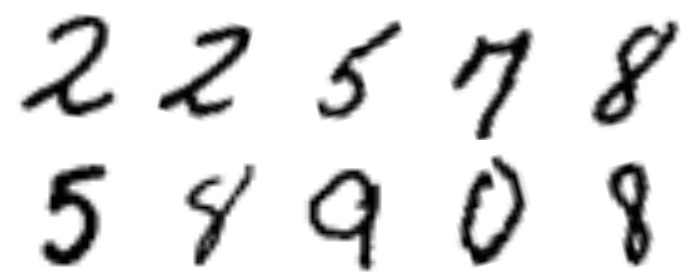 2 2 5 7 8
5 8 9 0 8